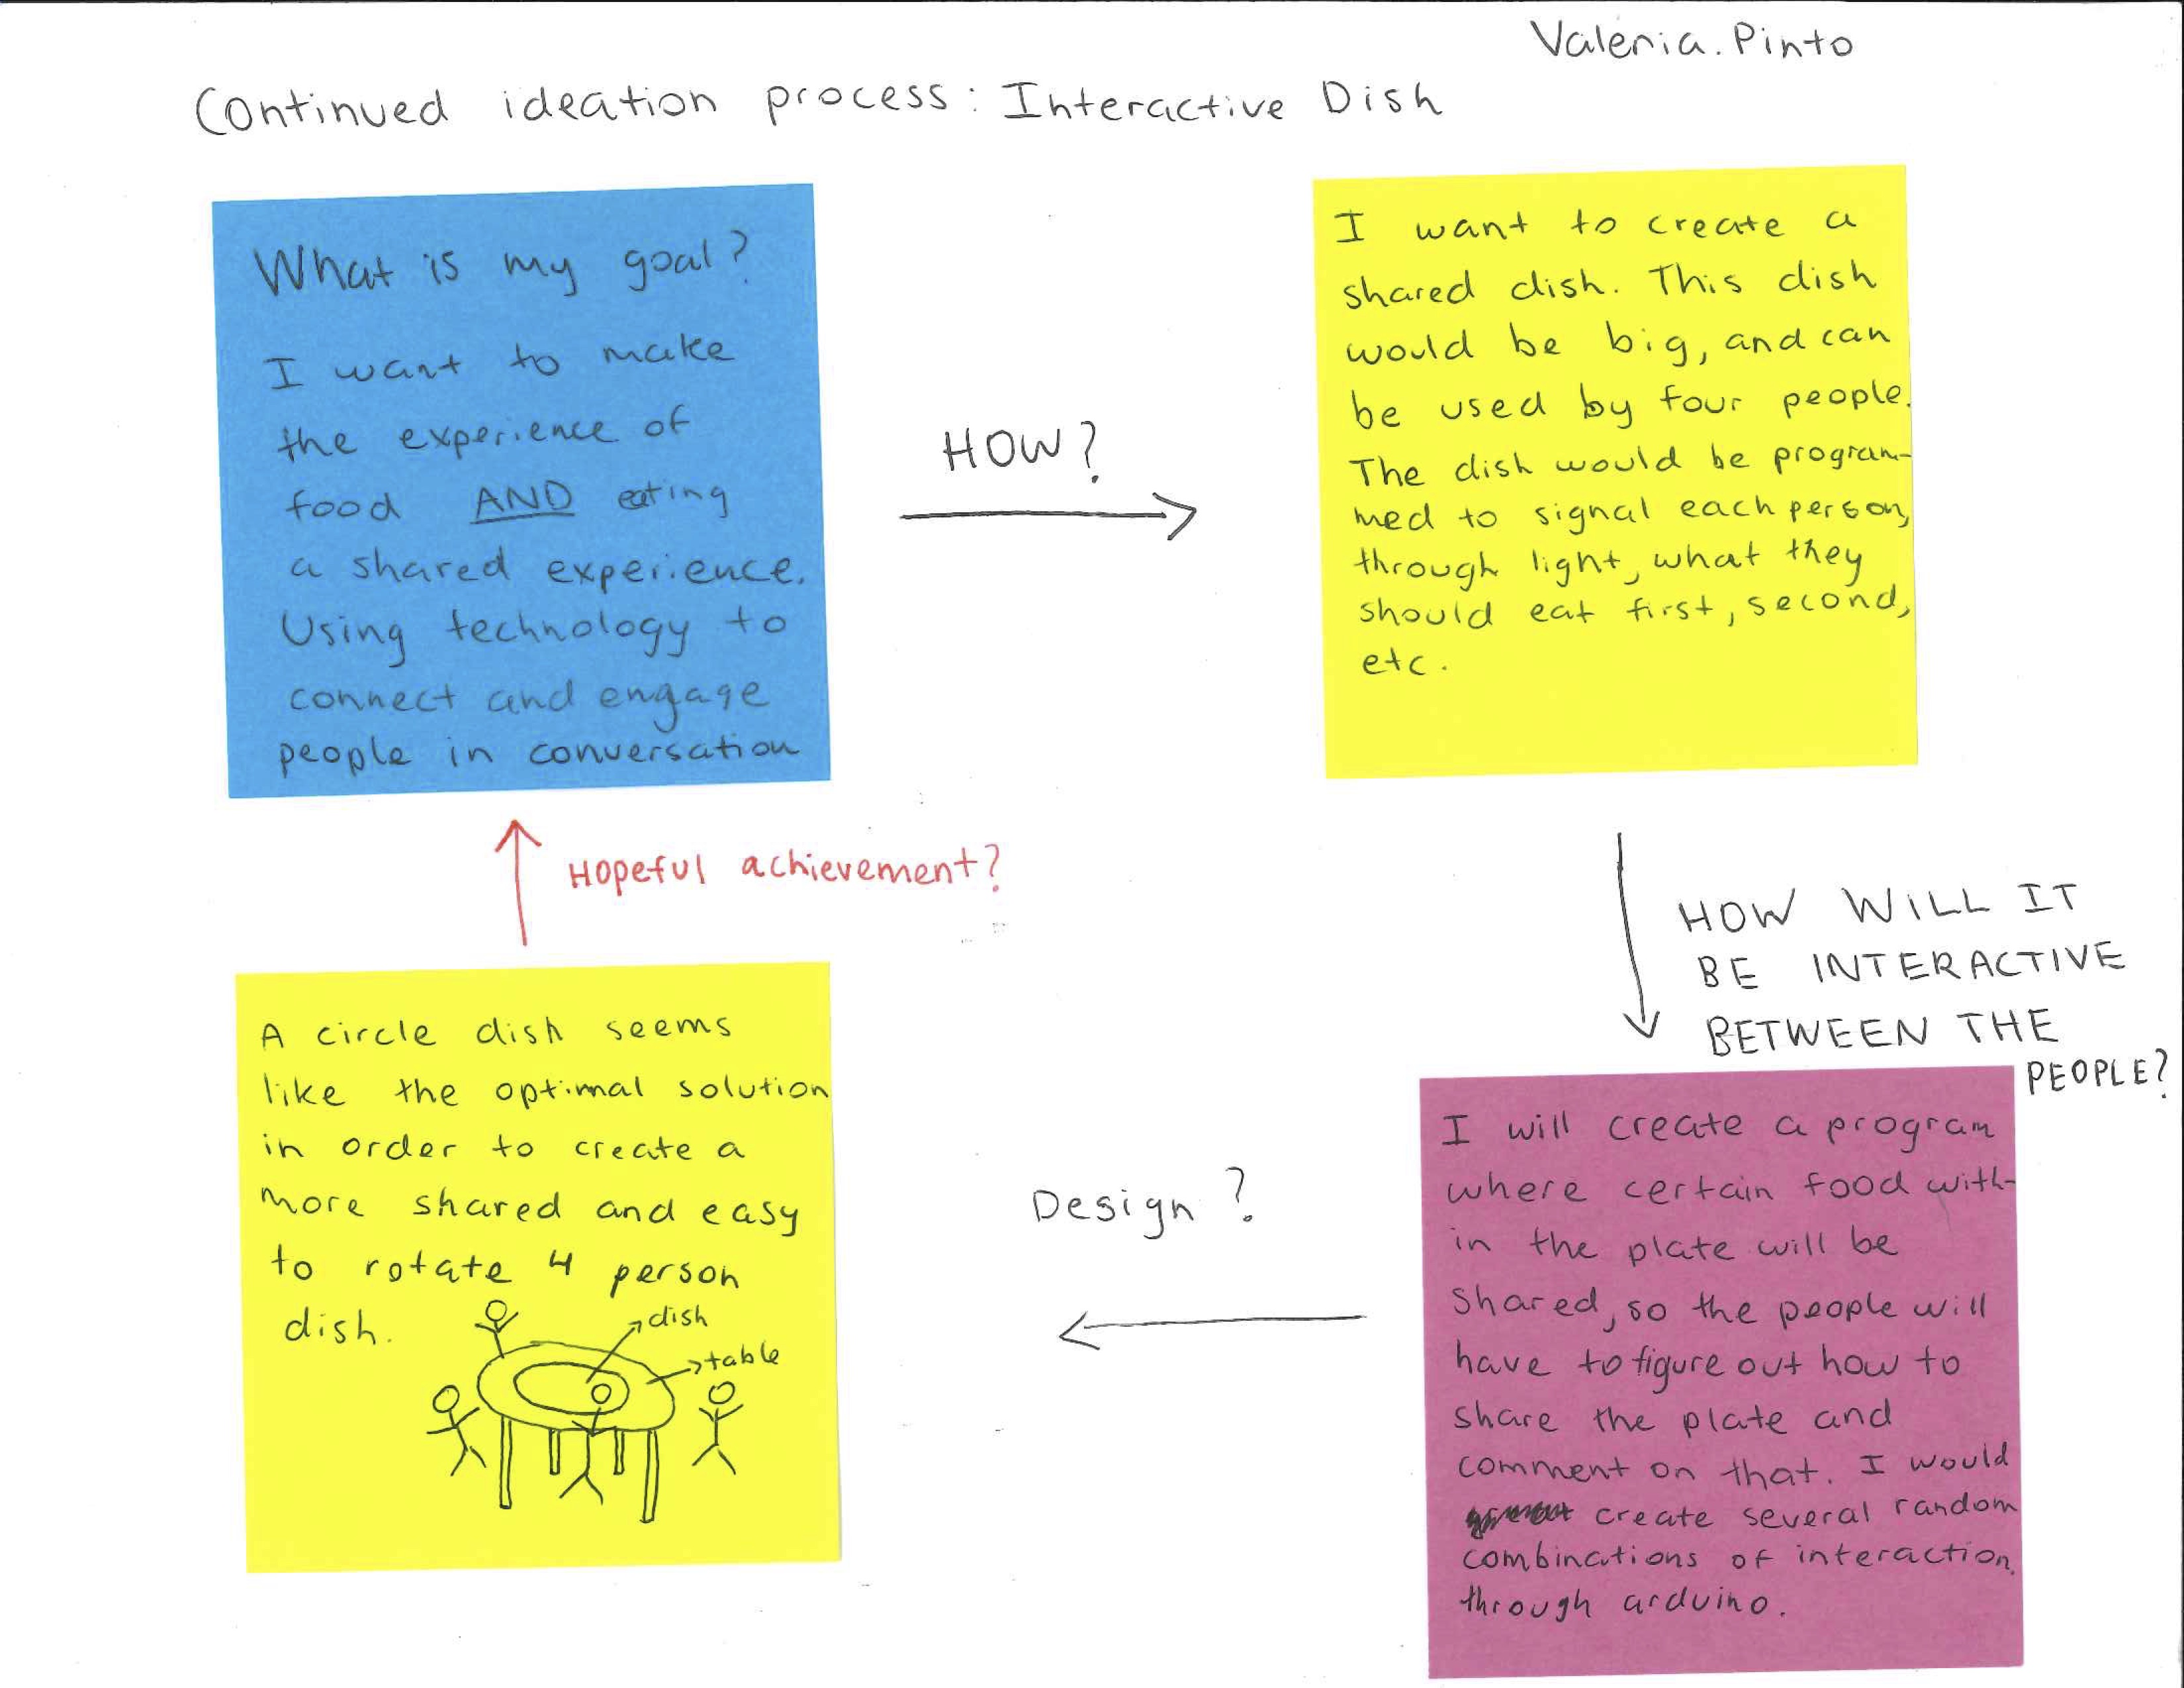 Valeria.Pinto
Continued ideation process: Interactive Dish
What is my goal?
I want to make
the experience of
food AND eating
a shared experience.
Using technology to
connect and engage
people in conversation
HOW?
I want to create a
shared dish. This dish
would be big, and can
be used by four people.
The dish would be program-
med to signal each person,
through light, what they
should eat first, second,
etc.
HOW WILL IT
BE INTERACTIVE
BETWEEN THE
PEOPLE?
I will create a program
where certain food with-
in the plate will be
shared, so the people will
have to figure out how to
share the plate and
comment on that. I would
create several random
combinations of interaction
through arduino.
Design?
A circle dish seems
like the optimal solution
in order to create a
more shared and easy
to rotate 4 person
dish.
dish
table
Hopeful achievement?